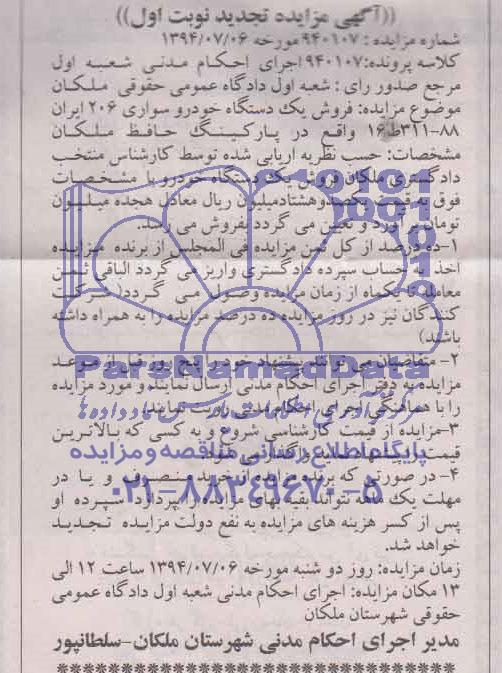 ((آگهی مزایده تجدید نوبت اول))
شماره مزایده : ۹۴۰۱۰۷ مورخه ۱۳۹۴/۰۷/۰۶
کلاسه پرونده:۹۴۰۱۰۷ اجرای احکام مدنی شعبه اول
مرجع صدور رای : شعبه اول دادگاه عمومی حقوقی ملکان
موضوع مزایده: فروش یک دستگاه خودرو سواری ۲۰۶ ایران
۸۸–۳۱۱ط۱۶ واقع در پارکینگ حافظ ملکان
مشخصات: حسب نظریه ارزیابی شده توسط کارشناس منتخب
دادگستری ملکان فروش یک دستگاه خودرو با مشخصات
فوق به قیمت یکصدوهشتادمیلیون ریال معادل هجده میلیون
تومان برآورد و تعیین می گردد بفروش می رسد.
۱–ده درصد از کل ثمن مزایده فی المجلس از برنده مزایده
اخذ به حساب سپرده دادگستری واریز می گردد الباقی ثمن
معامله تا یکماه از زمان مزایده وصول می گردد( شرکت
کنندگان نیز در روز مزایده ده درصد مزایده را به همراه داشته
باشند)
۲– متقاضیان می توانند پیشنهاد خود را پنج روز قبل از موعد
مزایده به دفتر اجرای احکام مدنی ارسال نمایند و مورد مزایده
را با هماهنگی اجرای احکام مدنی رویت نمایند.
۳–مزایده از قیمت کارشناسی شروع و به کسی که بالاترین
قیمت را پیشنهاد نماید واگذار می شود.
۴– در صورتی که برنده مزایده از خرید منصرف و یا در
مهلت یک ماهه نتواند بقیه بهای مزایده را بپردازد سپرده او
پس از کسر هزینه های مزایده به نفع دولت مزایده تجدید
خواهد شد.
زمان مزایده: روز دو شنبه مورخه ۱۳۹۴/۰۷/۰۶ ساعت ۱۲ الی
۱۳ مکان مزایده: اجرای احکام مدنی شعبه اول دادگاه عمومی
حقوقی شهرستان ملکان
مدیر اجرای احکام مدنی شهرستان ملکان–سلطانپور
ParsNamadData
پایگاه اطلاع رسانی مناقصه و مزایده
۰۲۱–۸۸۳۴۹۶۷۰–۵